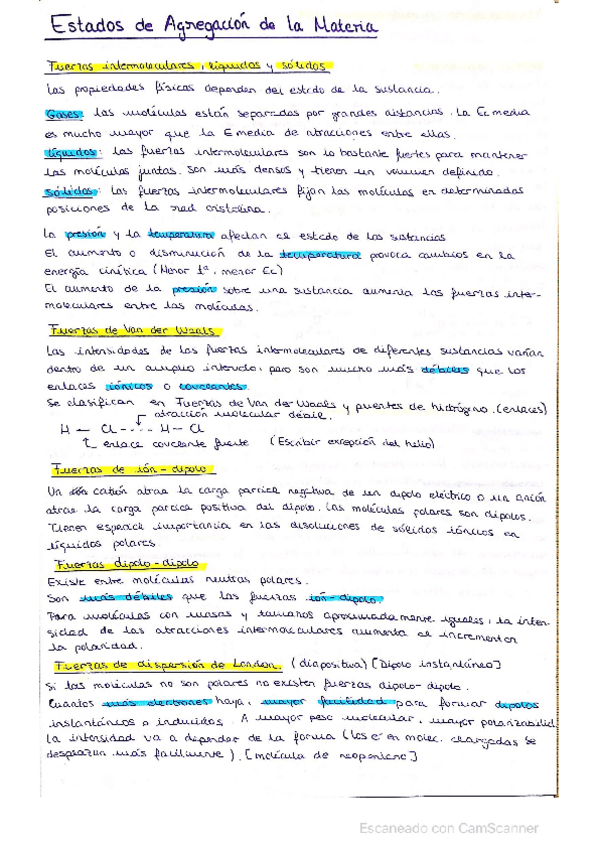 Estados de Agregación de la Materia
Fuerzas intermoleculares, líquidos y sólidos
Las propiedades físicas dependen del estado de la sustancia.
Gases: las moléculas están separadas por grandes distancias. La Ec media
es mucho mayor que la E media de atracciones entre ellas.
Líquidos: las fuerzas intermoleculares son lo bastante fuertes para mantener
las moléculas juntas. Son más densos y tienen un volumen definido.
Sólidos: las fuerzas intermoleculares fijan las moléculas en determinadas
posiciones de la red cristalina.
La presión y la temperatura afectan al estado de las sustancias
El aumento o disminución de la temperatura provoca cambios en la
energía cinética (Menor Tª, menor Ec)
El aumento de la presión sobre una sustancia aumenta las fuerzas inter-
moleculares entre las moléculas.
Fuerzas de Van der Waals
Las intensidades de las fuerzas intermoleculares de diferentes sustancias varían
dentro de un amplio intervalo, pero son mucho más débiles que los
enlaces iónicos o covalentes.
Se clasifican en Fuerzas de Van der Waals y puentes de hidrógeno. (enlaces)
atracción molecular débil.
H — Cl ---- H — Cl
enlace covalente fuerte (Escribir excepción del helio)
Fuerzas de ión-dipolo
Un catión atrae la carga parcial negativa de un dipolo eléctrico o un anión
atrae la carga parcial positiva del dipolo. Las moléculas polares son dipolos.
Tienen especial importancia en las disoluciones de sólidos iónicos en
líquidos polares.
Fuerzas dipolo-dipolo
Existe entre moléculas neutras polares.
Son más débiles que las fuerzas ión-dipolo.
Para moléculas con masas y tamaños aproximadamente iguales, la inten-
sidad de las atracciones intermoleculares aumenta al incrementar
la polaridad.
Fuerzas de dispersión de London. (diapositiva) [Dipolo instantáneo]
Si las moléculas no son polares no existen fuerzas dipolo-dipolo.
Cuantos más electrones haya, mayor facilidad para formar dipolos
instantáneos o inducidos. A mayor peso molecular, mayor polarizabilidad
La intensidad va a depender de la forma (los e⁻ en molec. alargadas se
desplazan más fácilmente). [molécula de neopentano]
Escaneado con CamScanner